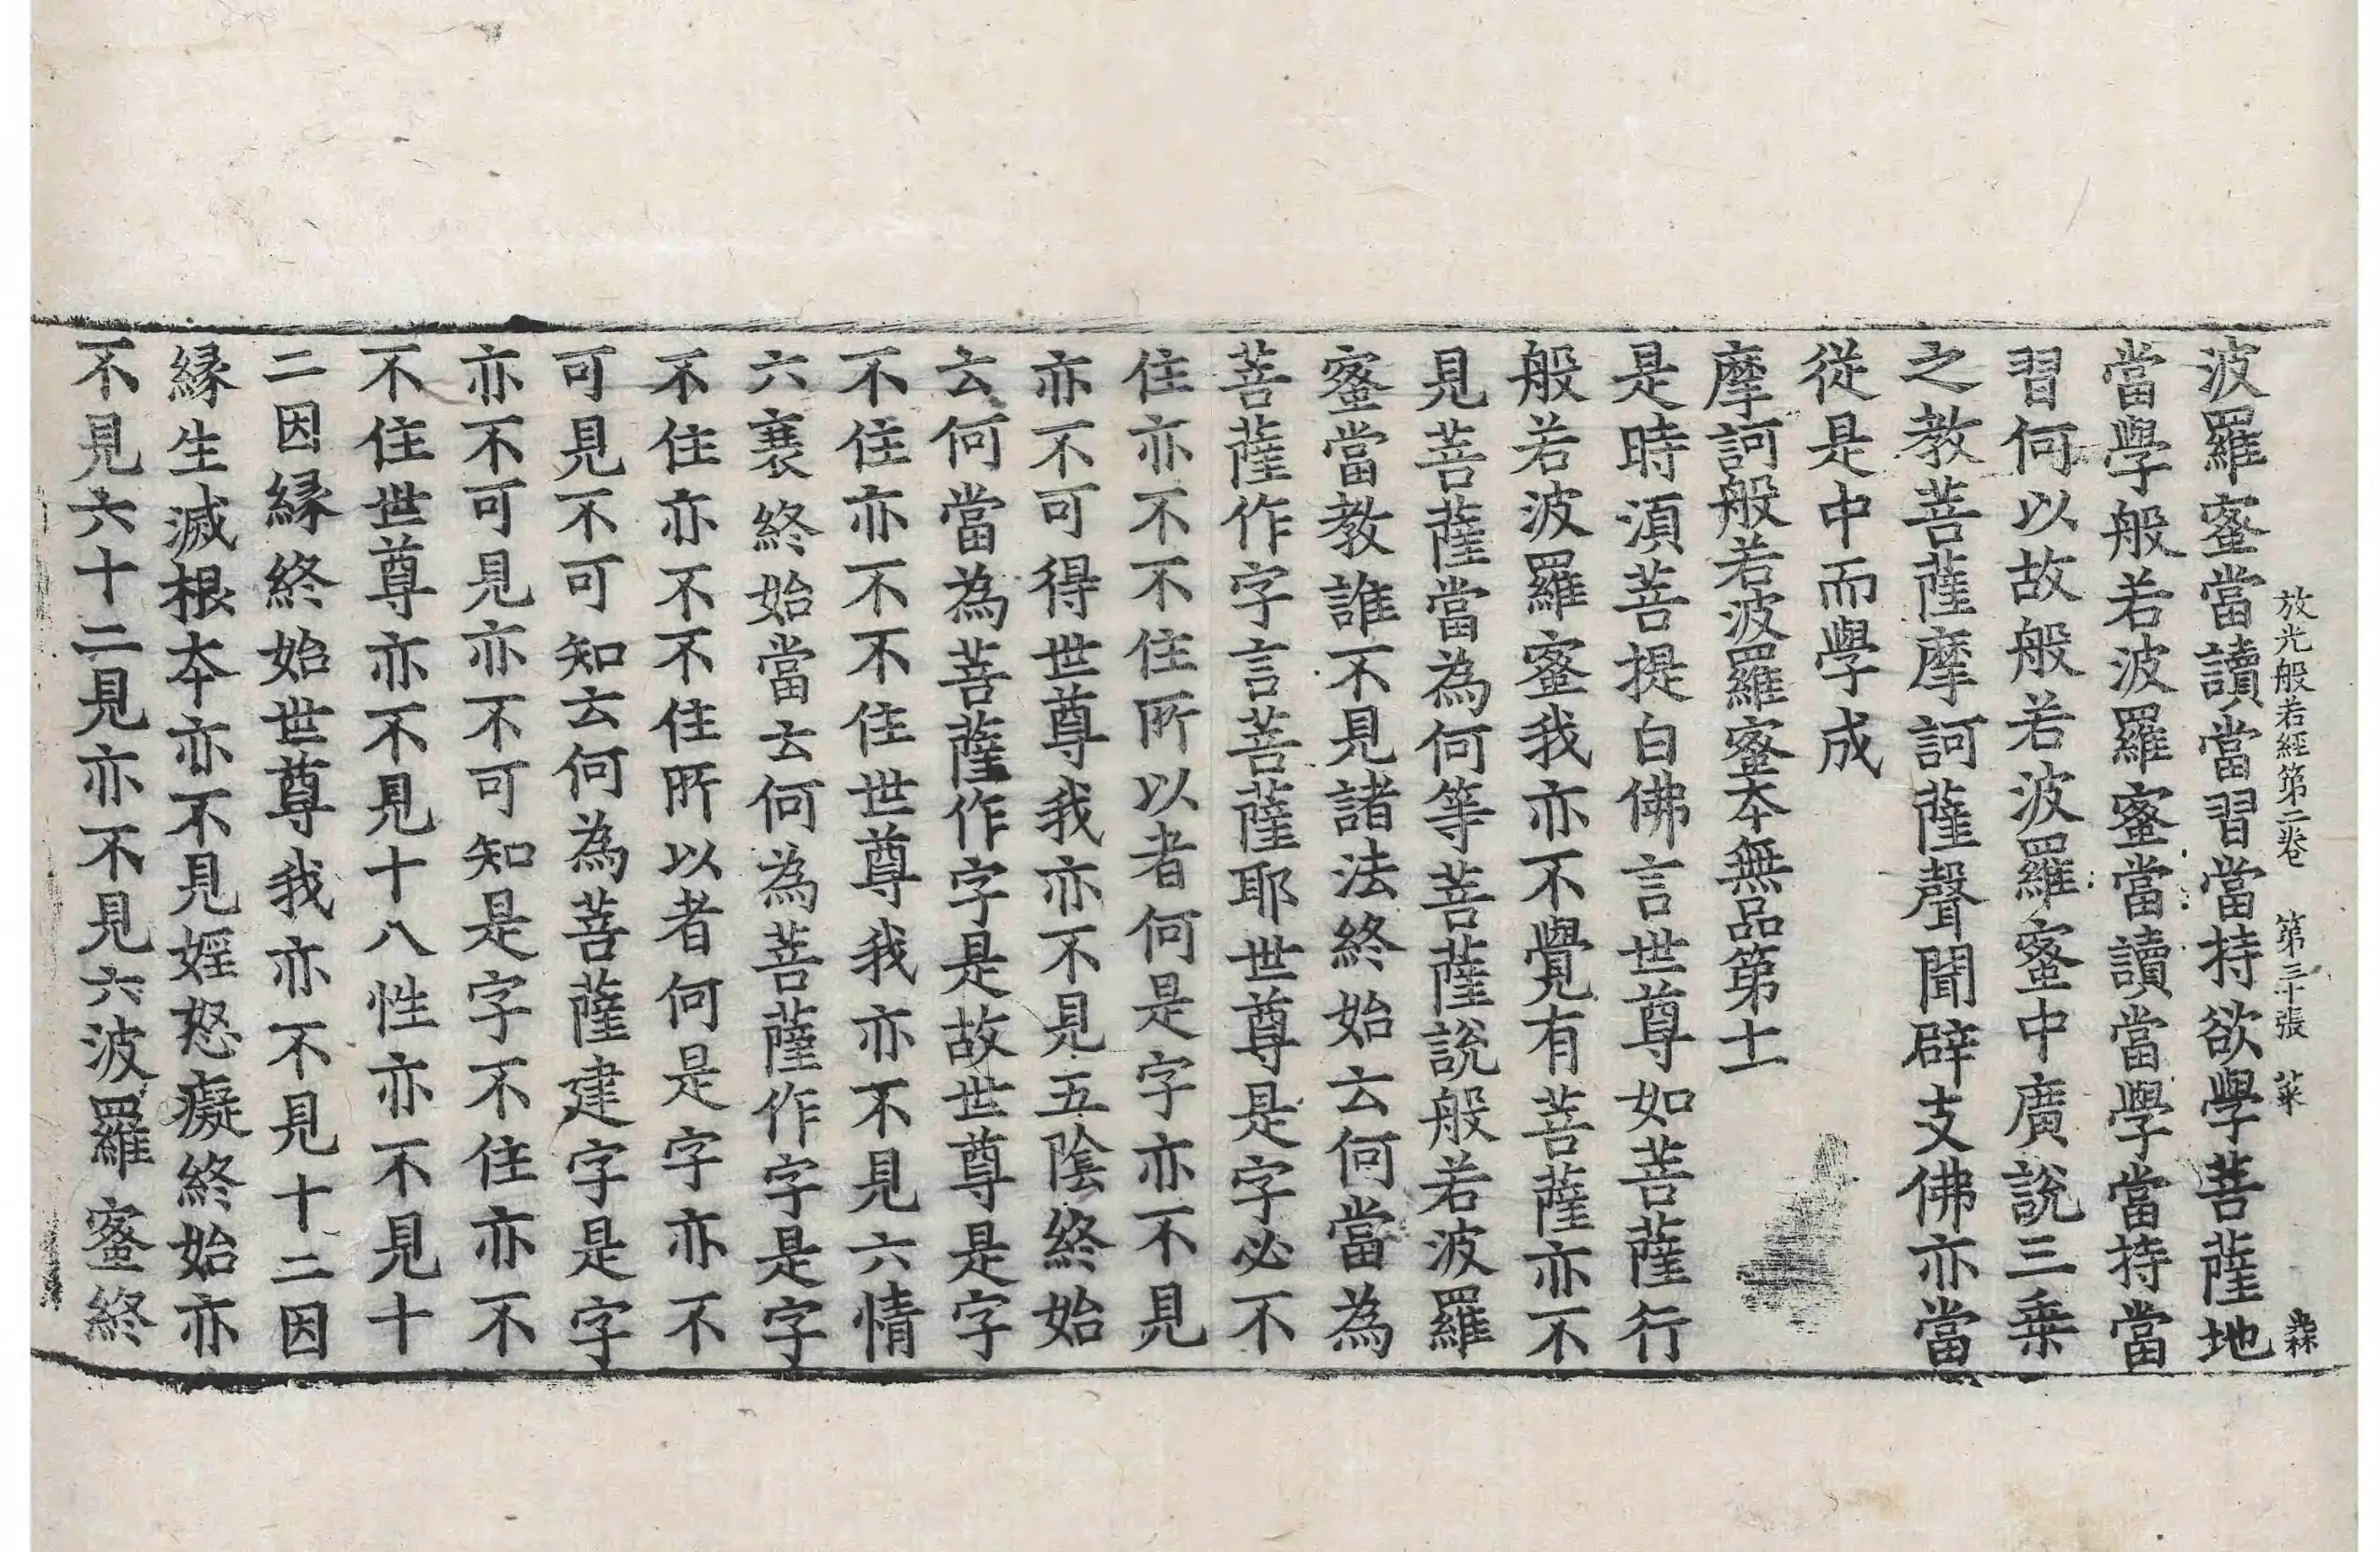 放光般若經第二卷 第三十張 菜
波羅蜜當讀當習當持欲學菩薩地
當學般若波羅蜜當讀當學當持當
習何以故般若波羅蜜中廣說三乗
之教菩薩摩訶薩聲聞辟支佛亦當
從是中而學成
摩訶般若波羅蜜夲無品第十一
是時須菩提白佛言世尊如菩薩行
般若波羅蜜我亦不覺有菩薩亦不
見菩薩當為何等菩薩說般若波羅
蜜當教誰不見諸法終始云何當為
菩薩作字言菩薩耶世尊是字必不
住亦不不住所以者何是字亦不見
亦不可得世尊我亦不見五陰終始
云何當為菩薩作字是故世尊是字
不住亦不不住世尊我亦不見六情
六衰終始當云何為菩薩作字是字
不住亦不不住所以者何是字亦不
可見不可知云何為菩薩建字是字
亦不可見亦不可知是字不住亦不
不住世尊亦不見十八性亦不見十
二因縁終始世尊我亦不見十二因
縁生滅根夲亦不見婬怒癡終始亦
不見六十二見亦不見六波羅蜜終